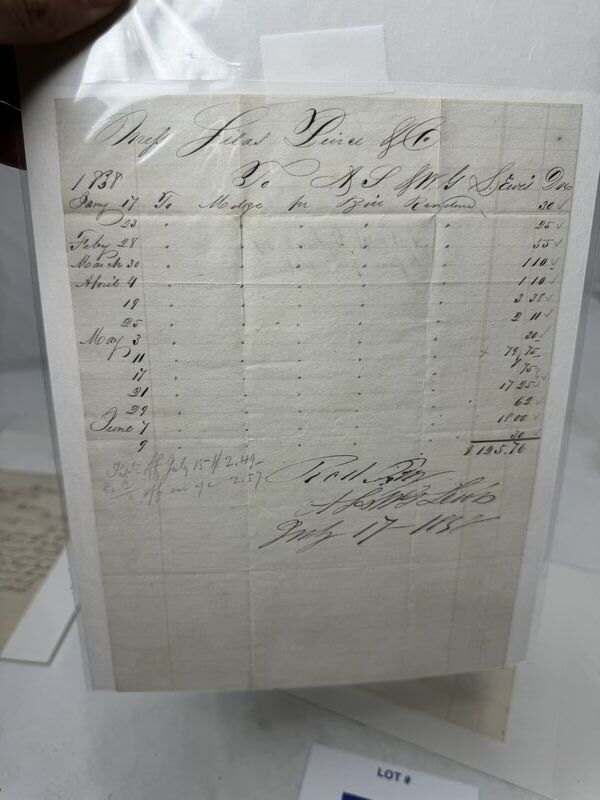 Mess Silas Peirce & Co
1838 To A S & W G Lewis Drs
Jany 17 To Mdze pr Bill Rendered 30
23 " " " " " 25
Feby 28 " " " " " 55
March 30 " " " " " 1 10
April 4 " " " " " 1 10
19 " " " " " 3 38
25 " " " " " 2 11
May 3 " " " " " 30
11 " " " " " 79 75
17 " " " " " 75
21 " " " " " 17 25
29 " " " " " 62
June 7 " " " " " 18 00
9 " " " " " 30
$125.76
off July 15 2.49
off 2.57
Recd Pay
A S & W G Lewis
July 17 - 1838
LOT #